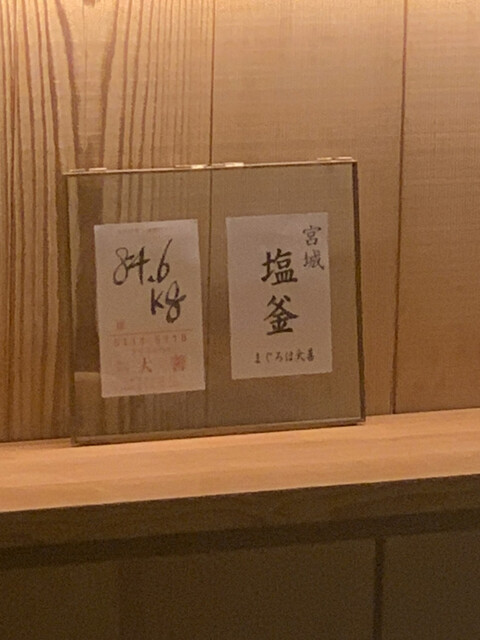 84.6
kg
大善
宮城
塩釜
まぐろは大善